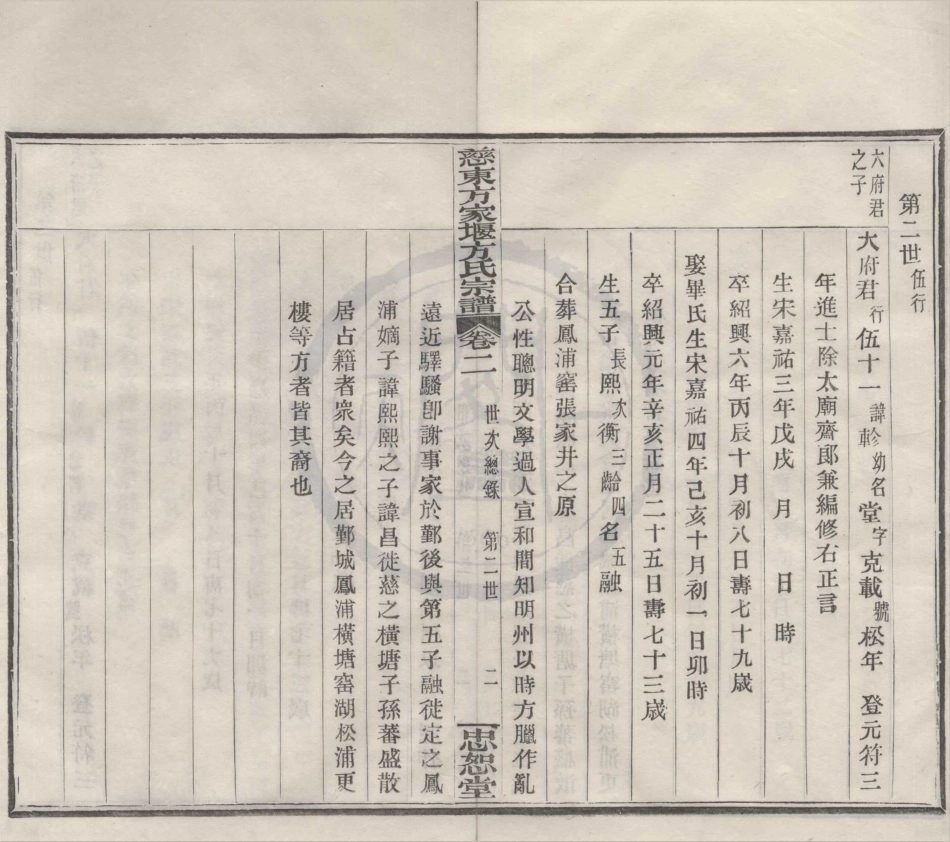 第二世伍行
六府君之子
大府君行伍十一諱軫幼名堂字克載號松年 登元符三
年進士除太廟齋郞兼編修右正言
生宋嘉祐三年戊戌 月 日 時
卒紹興六年丙辰十月初八日壽七十九歲
娶畢氏生宋嘉祐四年己亥十月初一日卯時
卒紹興元年辛亥正月二十五日壽七十三歲
生五子長熙次衡三齡四名五融
合葬鳳浦窰張家井之原
公性聰明文學過人宣和間知明州以時方臘作亂
慈東方家堰方氏宗譜 卷二 世次總錄 第二世 二 忠恕堂
遠近驛騷卽謝事家於鄞後與第五子融徙定之鳳
浦嫡子諱熙熙之子諱昌徙慈之橫塘子孫蕃盛散
居占籍者衆矣今之居鄞城鳳浦橫塘窑湖松浦更
樓等方者皆其裔也